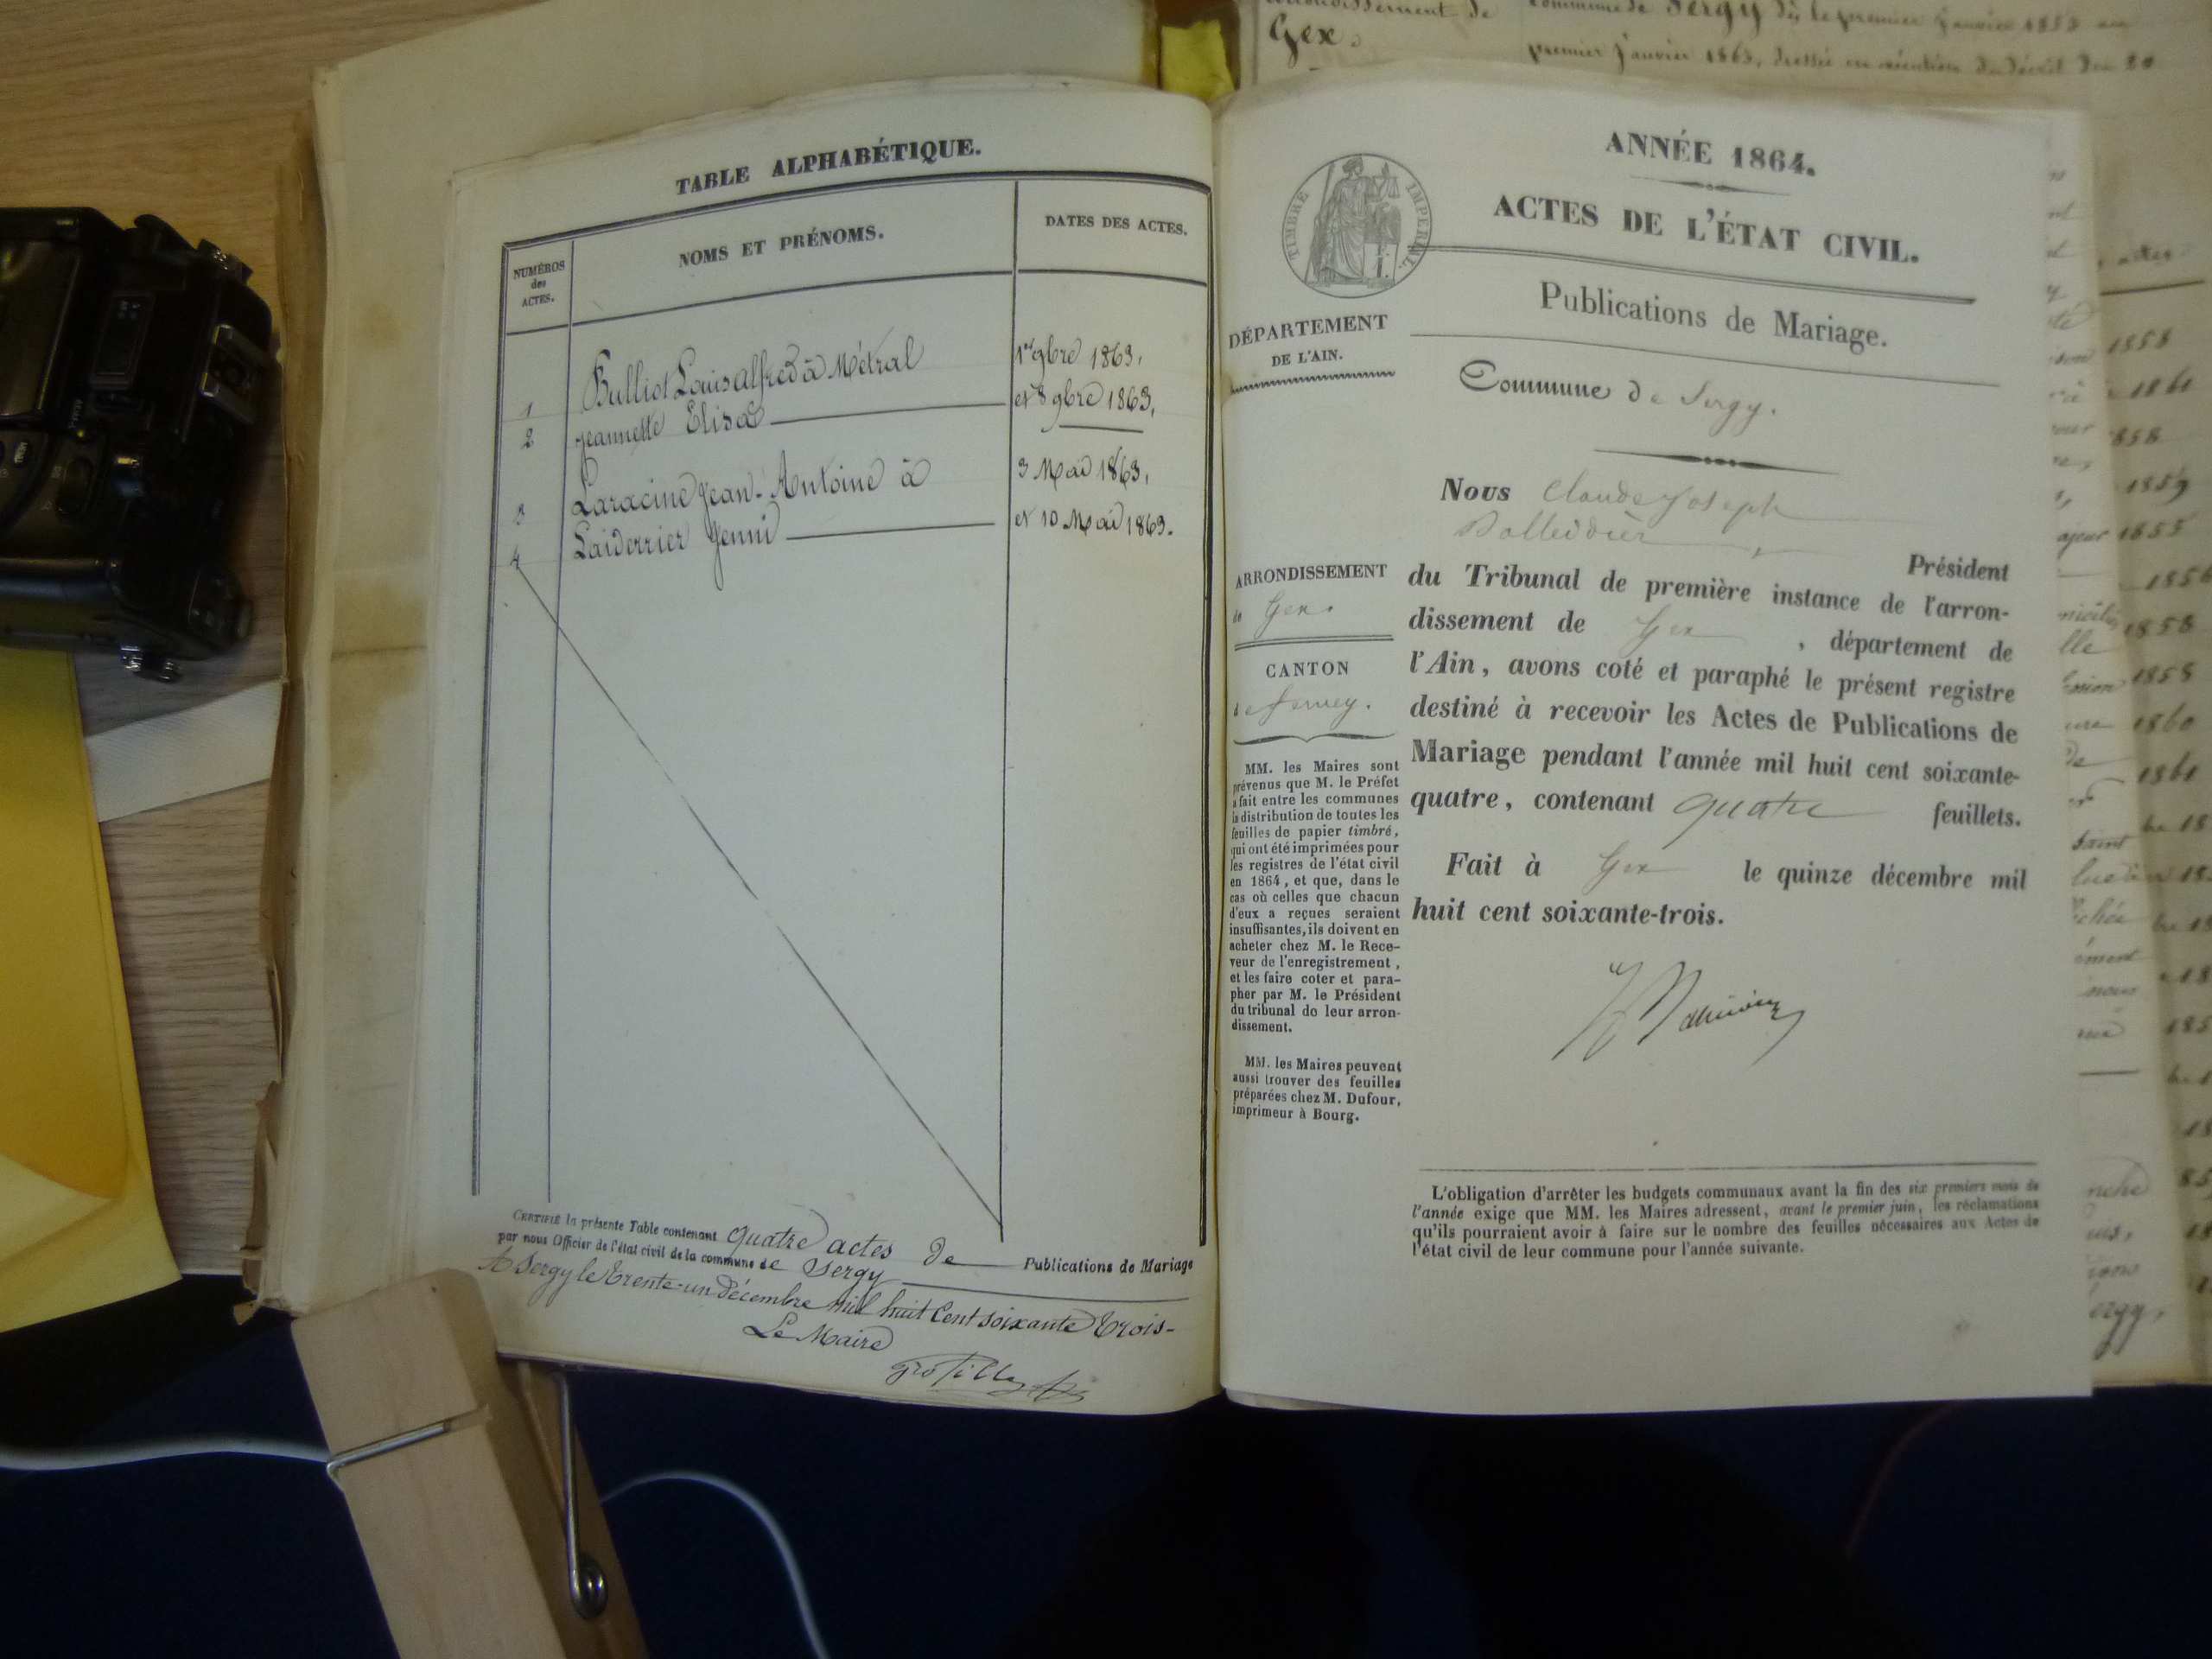 TABLE ALPHABÉTIQUE.
NUMÉROS
des
ACTES.
NOMS ET PRÉNOMS.
DATES DES ACTES.
1 Bulliot Louis Alfred à Métral 1er 9bre 1863,
2 Jeannette Elisa et 8 9bre 1863,
3 Laracine Jean-Antoine à 3 Mai 1863,
4 Laiderrier Jenni et 10 Mai 1863.
CERTIFIÉ la présente Table contenant quatre actes de Publications de Mariage
par nous Officier de l'état civil de la commune de Sergy
A Sergy le trente-un décembre mil huit cent soixante trois-
Le Maire
Gex.
commune de Sergy
premier janvier 1863,
ANNÉE 1864.
TIMBRE IMPÉRIAL.
ACTES DE L'ÉTAT CIVIL.
Publications de Mariage.
DÉPARTEMENT
DE L'AIN.
Commune de Sergy.
Nous Claude Joseph
Président
ARRONDISSEMENT
de Gex.
CANTON
de Ferney.
MM. les Maires sont
prévenus que M. le Préfet
a fait entre les communes
la distribution de toutes les
feuilles de papier timbré,
qui ont été imprimées pour
les registres de l'état civil
en 1864, et que, dans le
cas où celles que chacun
d'eux a reçues seraient
insuffisantes, ils doivent en
acheter chez M. le Rece-
veur de l'enregistrement,
et les faire coter et para-
pher par M. le Président
du tribunal de leur arron-
dissement.
MM. les Maires peuvent
aussi trouver des feuilles
préparées chez M. Dufour,
imprimeur à Bourg.
du Tribunal de première instance de l'arron-
dissement de Gex , département de
l'Ain, avons coté et paraphé le présent registre
destiné à recevoir les Actes de Publications de
Mariage pendant l'année mil huit cent soixante-
quatre, contenant quatre feuillets.
Fait à Gex le quinze décembre mil
huit cent soixante-trois.
L'obligation d'arrêter les budgets communaux avant la fin des six premiers mois de
l'année exige que MM. les Maires adressent, avant le premier juin, les réclamations
qu'ils pourraient avoir à faire sur le nombre des feuilles nécessaires aux Actes de
l'état civil de leur commune pour l'année suivante.
1858
1861
1858
1859
1855
1858
1858
1860
1861